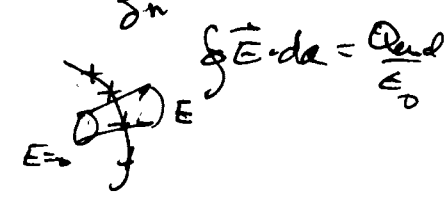 ∂n
∮ E⃗ · da = Qencl / ε₀
E
E=0